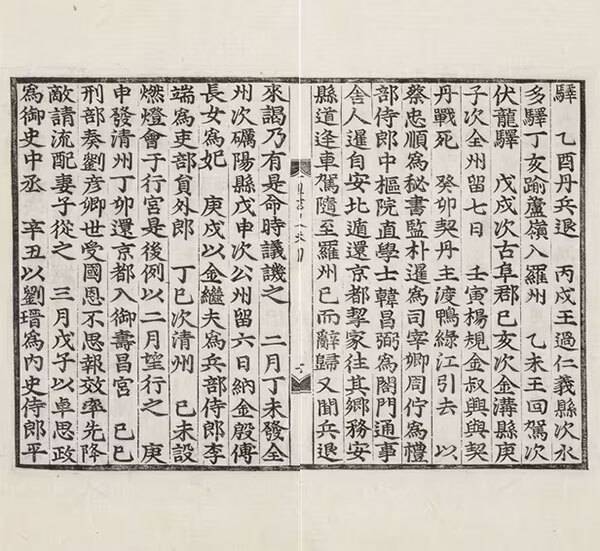 驛 乙酉丹兵退 丙戌王過仁義縣次水
多驛丁亥踰蘆嶺入羅州 乙未王回駕次
伏龍驛 戊戌次古阜郡己亥次金溝縣庚
子次全州留七日 壬寅楊規金叔興與契
丹戰死 癸卯契丹主渡鴨綠江引去 以
蔡忠順爲秘書監朴暹爲司宰卿周佇爲禮
部侍郎中樞院直學士韓昌弼爲閤門通事
舍人暹自安北遁還京都挈家往其鄉務安
縣道逢車駕隨至羅州已而辭歸又聞兵退
來謁乃有是命時議譏之 二月丁未發全
州次礪陽縣戊申次公州留六日納金殷傅
長女爲妃 庚戌以金繼夫爲兵部侍郎李
端爲吏部員外郎 丁巳次清州 己未設
燃燈會于行宮是後例以二月望行之 庚
申發清州丁卯還京都入御壽昌宮 己巳
刑部奏劉彦卿世受國恩不思報效率先降
敵請流配妻子從之 三月戊子以卓思政
爲御史中丞 辛丑以劉瑨爲內史侍郎平